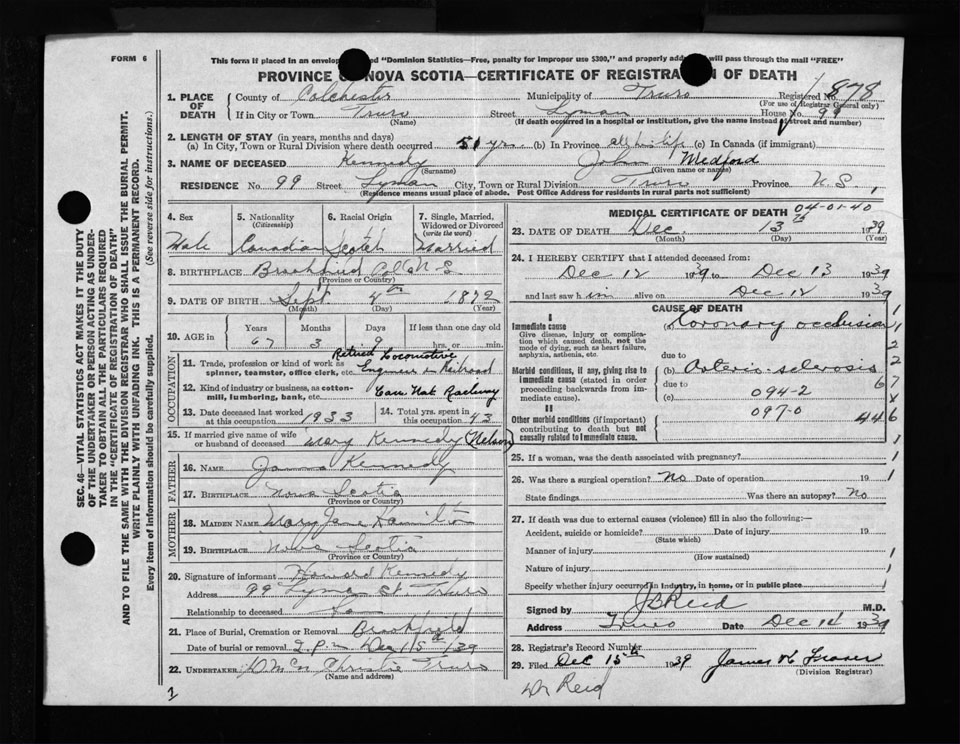 FORM 6
This form if placed in an envelope "Dominion Statistics—Free, penalty for improper use $300," and properly will pass through the mail "FREE"
PROVINCE NOVA SCOTIA—CERTIFICATE OF REGISTRATION OF DEATH
1. PLACE OF DEATH County of Colchester Municipality of Truro Registered No. 878
(For use of Registrar General only)
If in City or Town Truro Street Lyman House No. 99
(Name) (If death occurred in a hospital or institution, give the name instead of street and number)
2. LENGTH OF STAY (in years, months and days)
(a) In City, Town or Rural Division where death occurred 51 yrs. (b) In Province all his life (c) In Canada (if immigrant)
3. NAME OF DECEASED Kennedy John Medford
(Surname) (Given name or names)
RESIDENCE No. 99 Street Lyman City, Town or Rural Division Truro Province N.S.
(Residence means usual place of abode. Post Office Address for residents in rural parts not sufficient)
4. Sex 5. Nationality 6. Racial Origin 7. Single, Married, Widowed or Divorced
(Citizenship) (write the word)
Male Canadian Scotch Married
8. BIRTHPLACE Brookfield Col Co N-S
(Province or Country)
9. DATE OF BIRTH Sept 4th 1872
(Month) (Day) (Year)
10. AGE in Years Months Days If less than one day old
67 3 9 hrs. or min.
OCCUPATION
11. Trade, profession or kind of work as spinner, teamster, office clerk, etc. Retired Locomotive Engineer on Railroad
12. Kind of industry or business, as cotton-mill, lumbering, bank, etc. Can. Nat. Railway
13. Date deceased last worked at this occupation 1933 14. Total yrs. spent in this occupation 43
15. If married give name of wife or husband of deceased Mary Kennedy (Nelson)
FATHER
16. NAME James Kennedy
17. BIRTHPLACE Nova Scotia
(Province or Country)
MOTHER
18. MAIDEN NAME Mary Jane Hamilton
19. BIRTHPLACE Nova Scotia
(Province or Country)
20. Signature of informant Howard Kennedy
Address 99 Lyman St. Truro
Relationship to deceased Son
21. Place of Burial, Cremation or Removal Brookfield
Date of burial or removal 2 P.m Dec 15th/39
22. UNDERTAKER Christie Truro
(Name and address)
MEDICAL CERTIFICATE OF DEATH 04-01-40
23. DATE OF DEATH Dec. 13th 1939
(Month) (Day) (Year)
24. I HEREBY CERTIFY that I attended deceased from:
Dec 12 1939 to Dec 13 1939
and last saw him alive on Dec 12 1939
CAUSE OF DEATH
I
Immediate cause
Give disease, injury or complication which caused death, not the mode of dying, such as heart failure, asphyxia, asthenia, etc.
Coronary occlusion
due to
Morbid conditions, if any, giving rise to immediate cause (stated in order proceeding backwards from immediate cause).
(b) Arterio-sclerosis
due to
(c) 094-2
II
Other morbid conditions (important) contributing to death but not causally related to immediate cause.
097-0
446
25. If a woman, was the death associated with pregnancy?
26. Was there a surgical operation? No Date of operation 19
State findings Was there an autopsy? No
27. If death was due to external causes (violence) fill in also the following:—
Accident, suicide or homicide? Date of injury 19
(State which)
Manner of injury
(How sustained)
Nature of injury
Specify whether injury occurred in industry, in home, or in public place
Signed by J B Reid M.D.
Address Truro Date Dec 14 1939
28. Registrar's Record Number
29. Filed Dec 15th 1939 James K Fraser
(Division Registrar)
Dr Reid
1
SEC. 46—VITAL STATISTICS ACT MAKES IT THE DUTY
OF THE UNDERTAKER OR PERSON ACTING AS UNDER-
TAKER TO OBTAIN ALL THE PARTICULARS REQUIRED
IN THE "CERTIFICATE OF REGISTRATION OF DEATH"
AND TO FILE THE SAME WITH THE DIVISION REGISTRAR WHO SHALL ISSUE THE BURIAL PERMIT.
WRITE PLAINLY WITH UNFADING INK. THIS IS A PERMANENT RECORD.
Every item of information should be carefully supplied. (See reverse side for instructions.)